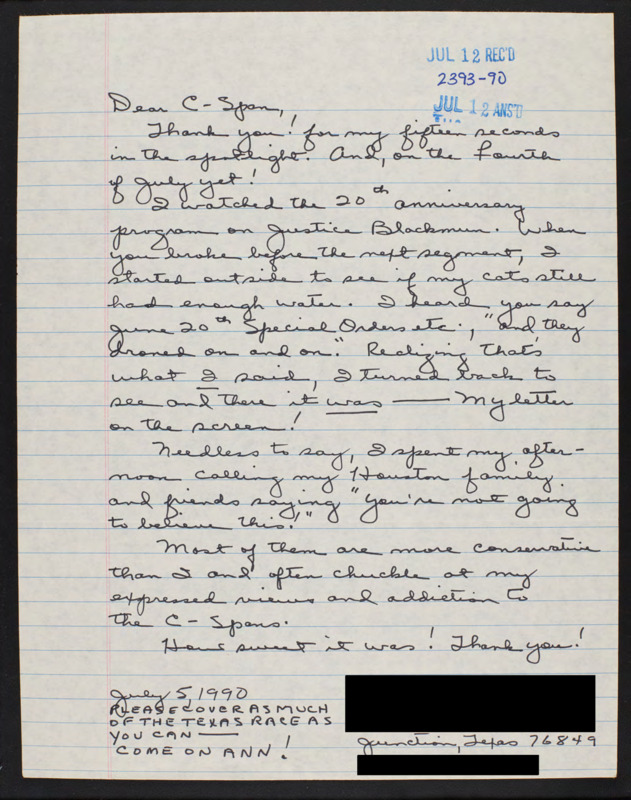 JUL 12 REC'D
2393-90
JUL 12 ANS'D
Dear C-Span,
Thank you! for my fifteen seconds
in the spotlight. And, on the Fourth
of July yet!
I watched the 20th anniversary
program on Justice Blackmun. When
you broke before the next segment, I
started outside to see if my cats still
had enough water. I heard you say
June 20th Special Orders etc., "and they
droned on and on." Realizing that's
what I said, I turned back to
see and there it was — My letter
on the screen!
Needless to say, I spent my after-
noon calling my Houston family
and friends saying "you're not going
to believe this!"
Most of them are more conservative
than I and often chuckle at my
expressed views and addiction to
the C-Spans.
How sweet it was! Thank you!
July 5, 1990
PLEASE COVER AS MUCH
OF THE TEXAS RACE AS
YOU CAN —
COME ON ANN!
Junction, Texas 76849